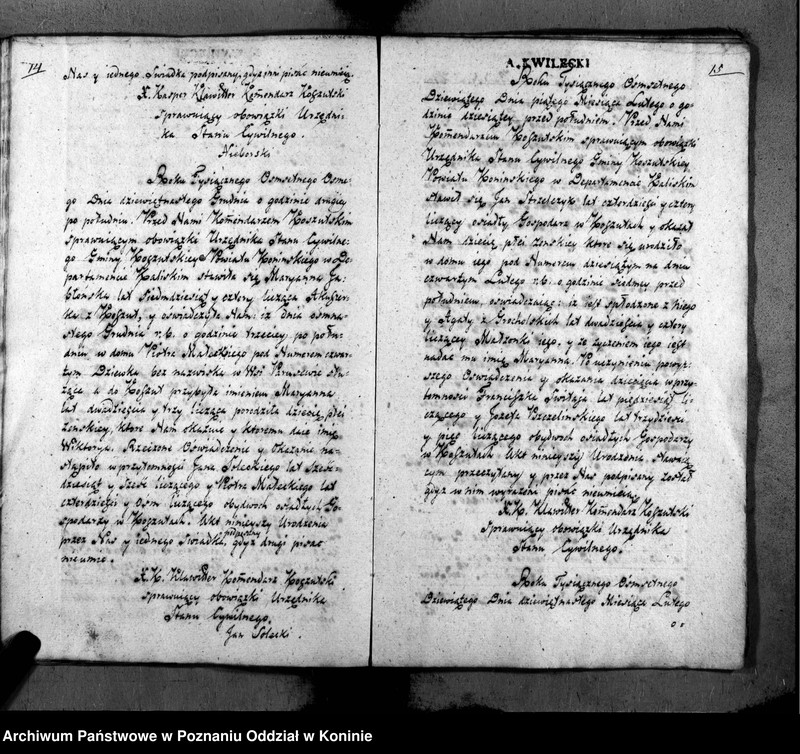 14
Nas y iednego Swiadka podpisany, gdyż inni pisać nieumieią.
X. Kasper Klawitter Komendarz Koszutski
Sprawuiący obowiązki Urzędni-
ka Stanu Cywilnego.
Roku Tysiącznego Osmsetnego Osme-
go Dnia dziewiętnastego Grudnia o godzinie drugiey
po południu. Przed Nami Komendarzem Koszutskim
sprawuiącym obowiązki Urzędnika Stanu Cywilne-
go Gminy Koszutskiey Powiatu Konińskiego w De-
partamencie Kaliskim stawiła się Maryanna Ja-
błonska lat Siedmdziesiąt y cztery licząca Akuszer-
ka z Koszut, y oswiadczyła Nam, iż Dnia osmna-
stego Grudnia r.b. o godzinie trzeciey po połu-
dniu w domu Piotra Małeckiego pod Numerem czwar-
tym Dziewka bez nazwiska w Wsi słu-
żąca a do Koszut przybyła imieniem Maryanna
lat dwadzieścia y trzy licząca porodziła dziecię płci
żenskiey, które Nam okazuie y któremu daie imię
Wiktorya. Rzeczone Oswiadczenie y okazanie na-
stąpiło w przytomności Jana Soleckiego lat Sześć-
dziesiąt y Sześć liczącego y Piotra Małeckiego lat
czterdzieści y osm liczącego obydwoch osiadłych Go-
spodarzy w Koszutach. Akt ninieyszy Urodzenia
przez Nas y iednego Swiadka podpisany, gdyż drugi pisać
nieumie.
X. K. Klawitter Komendarz Koszutski
sprawuiący obowiązki Urzędnika
Stanu Cywilnego.
Jan Solecki.
A. KWILECKI
15
Roku Tysiącznego Osmsetnego
Dziewiątego Dnia piątego Miesiąca Lutego o go-
dzinie dziesiątey przed południem. Przed Nami
Komendarzem Koszutskim sprawuiącym obowiązki
Urzędnika Stanu Cywilnego Gminy Koszutskiey
Powiatu Konińskiego w Departamencie Kaliskim
stawił się Jan Strzelczyk lat czterdzieści y cztery
liczący osiadły Gospodarz w Koszutach y okazał
Nam dziecię płci żenskiey które się urodziło
w domu iego pod Numerem dziesiątym na dniu
czwartym Lutego r.b. o godzinie siodmey przed
południem, oswiadczaiąc iż iest spłodzone z niego
y Agaty z Grocholskich lat dwadzieścia y cztery
liczącey Małżonki iego, y że życzeniem iego iest
nadać mu imię Maryanna. Po uczynieniu powyż-
szego Oswiadczenia y okazaniu dziecięcia w przy-
tomności Franciszka lat piędziesiąt li-
czącego y Jozefa Pszczelińskiego lat trzydzieści
y pięć liczącego obydwoch osiadłych Gospodarzy
w Koszutach. Akt ninieyszy Urodzenia stawaią-
cym przeczytany y przez Nas podpisany został
gdyż w nim wyrażeni pisać nieumieią.
X. K. Klawitter Komendarz Koszutski
Sprawuiący obowiązki Urzędnika
Stanu Cywilnego.
Roku Tysiącznego Osmsetnego
Dziewiątego Dnia dziewiętnastego Miesiąca Lutego
o
Archiwum Państwowe w Poznaniu Oddział w Koninie